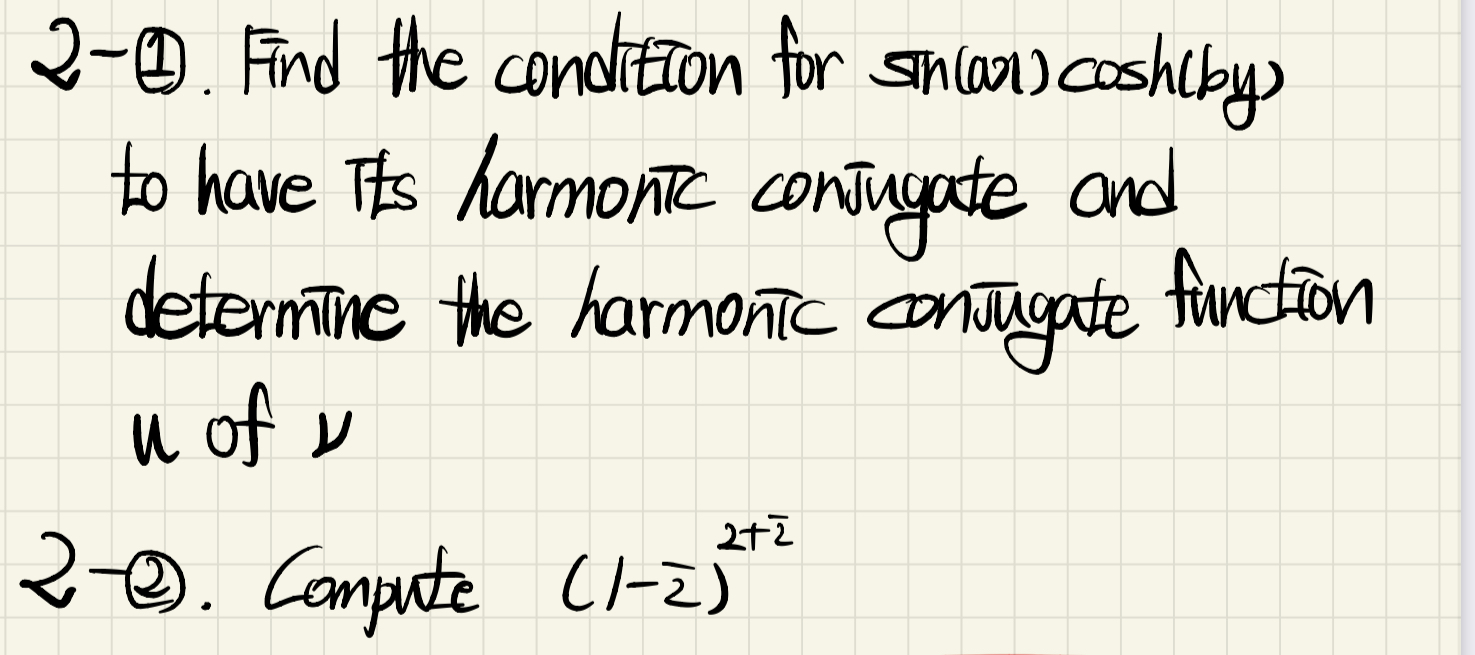 2-①. Find the condition for sin(ax) cosh(by)
to have its harmonic conjugate and
determine the harmonic conjugate function
u of v
2-②. Compute (1-i)^{2+i}